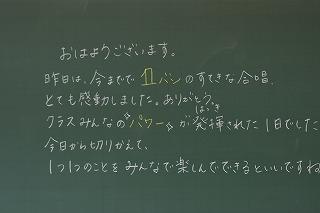 おはようございます。
昨日は、今までで 1バン のすてきな合唱、
とても感動しました。ありがとう。
クラスみんなの"パワー"が発揮された1日でした
はっき
今日から切りかえて、
1つ1つのことをみんなで楽しんでできるといいですね